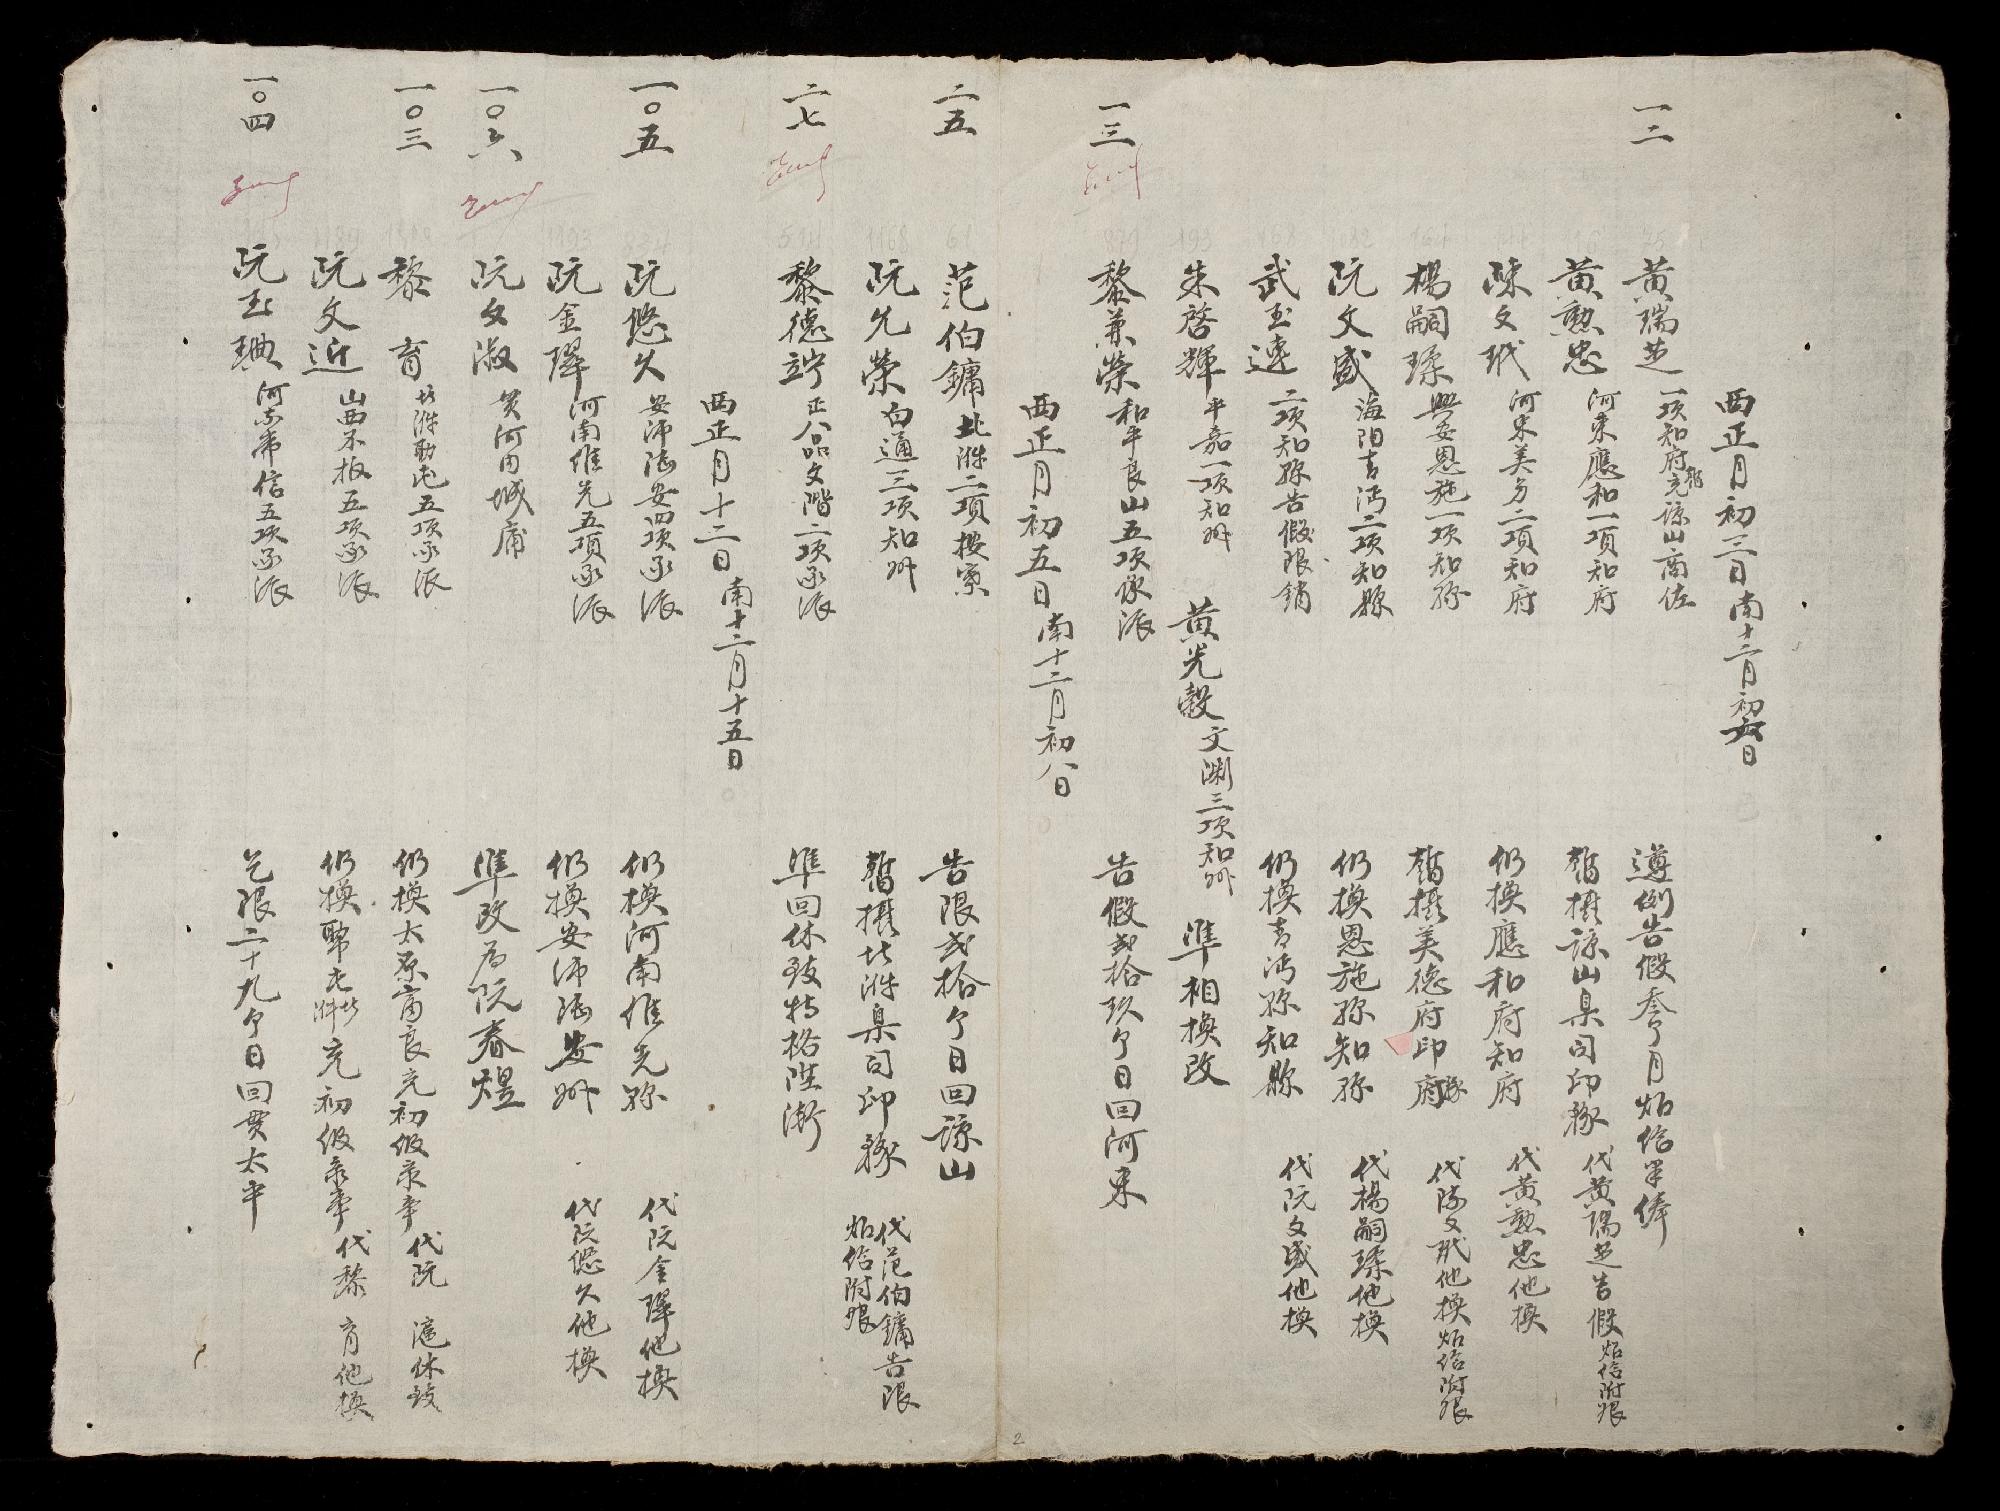 西正月初三日南十二月初六日
一二
黃瑞芝 一項知府充諒山商佐 遵例告假叁个月炤給半俸
黃勲忠 河東應和一項知府 暫攝諒山臬司印篆 代黃瑞芝告假炤給附限
陳文玳 河東美多二項知府 仍換應和府知府 代黃勲忠他換
楊嗣瑈 興安恩施一項知縣 暫攝美德府印篆 代陳文玳他換炤給附限
阮文盛 海陽青沔二項知縣 仍換恩施縣知縣 代楊嗣瑈他換
武玉璉 二項知縣告假限銷 仍換青沔縣知縣 代阮文盛他換
朱啓輝 平嘉一項知州 黃光毅 文淵三項知州 準相換改
一三 黎兼榮 和平良山五項承派 告假貳拾玖个日回河東
西正月初五日南十二月初八日
二五 范伯鏞 北𣴓二項按察 告限貳拾个日回諒山
阮允榮 白通三項知州 暫攝北𣴓臬司印篆 代范伯鏞告限炤給附限
二七 黎德竚 正八品文階二項承派 準回休致特格陞漸
西正月十二日南十二月十五日
一〇五 阮悠久 安沛陸安四項承派 仍換河南維先縣 代阮金琿他換
阮金琿 河南維先五項承派 仍換安沛陸安州 代阮悠久他換
一〇六 阮文淑 貫河內城庯 準改为阮春煜
一〇三 黎 育 北𣴓聘屯五項承派 仍換太原富良充初級彔事 代阮 滬休致
阮文近 山西不拔五項承派 仍換聘屯北𣴓充初級彔事 代黎 育他換
一〇四 阮玉琠 河東常信五項承派 乞限二十九个日回貫太平
2